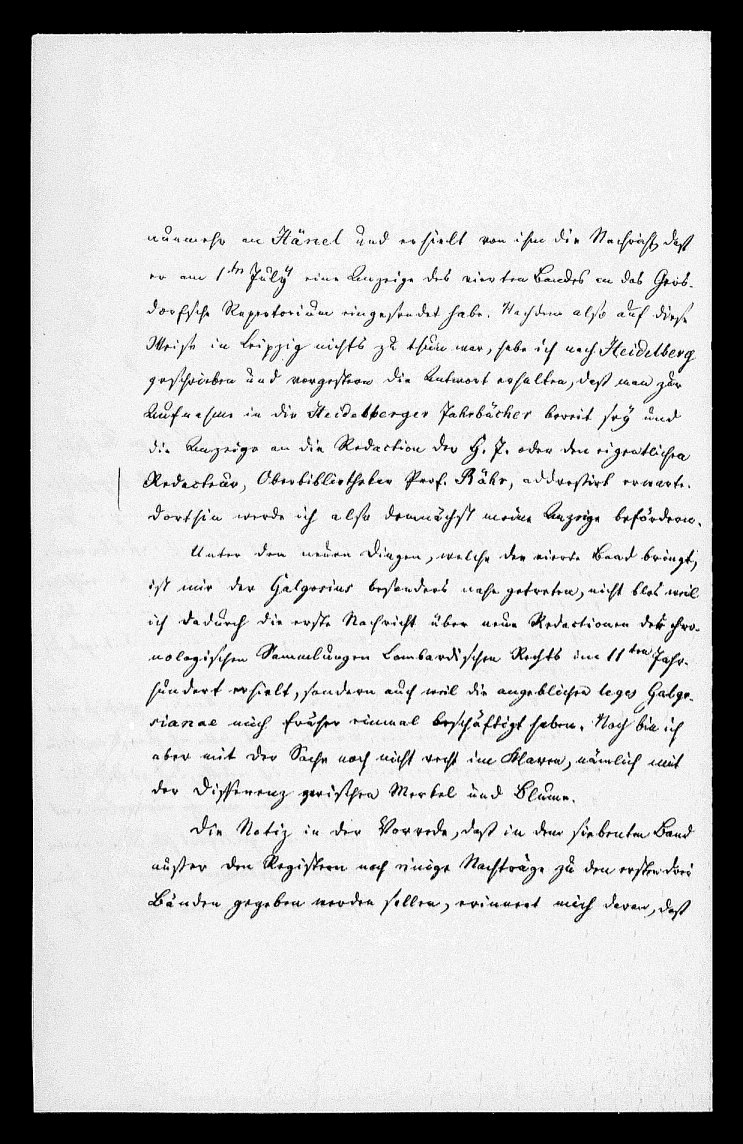 nunmehr an Hänel und erhielt von ihm die Nachricht, daß
er am 1ten July eine Anzeige des vierten Bandes an das Gers-
dorfsche Repertorium eingesendet habe. Nachdem also auf diese
Weise in Leipzig nichts zu thun war, habe ich nach Heidelberg
geschrieben und vorgestern die Antwort erhalten, daß man zur
Aufnahme in die Heidelberger Jahrbücher bereit sey und
die Anzeige an die Redaction der H. J. oder den eigentlichen
Redacteur, Oberbibliothekar Prof. Bähr, addressirt erwarte.
Dorthin werde ich also demnächst meine Anzeige befördern.
Unter den neuen Dingen, welche der vierte Band bringt,
ist mir der Galgosius besonders nahe getreten, nicht blos weil
ich dadurch die erste Nachricht über neue Redactionen der chro-
nologischen Sammlungen Lombardischen Rechts im 11ten Jahr-
hundert erhielt, sondern auch weil die angeblichen leges Galgo-
sianae mich früher einmal beschäftigt haben. Noch bin ich
aber mit der Sache noch nicht recht im Klaren, nämlich mit
der Differenz zwischen Merkel und Blume.
Die Notiz in der Vorrede, daß in dem siebenten Band
außer den Registern noch einige Nachträge zu den ersten drei
Bänden gegeben werden sollen, erinnert mich daran, daß